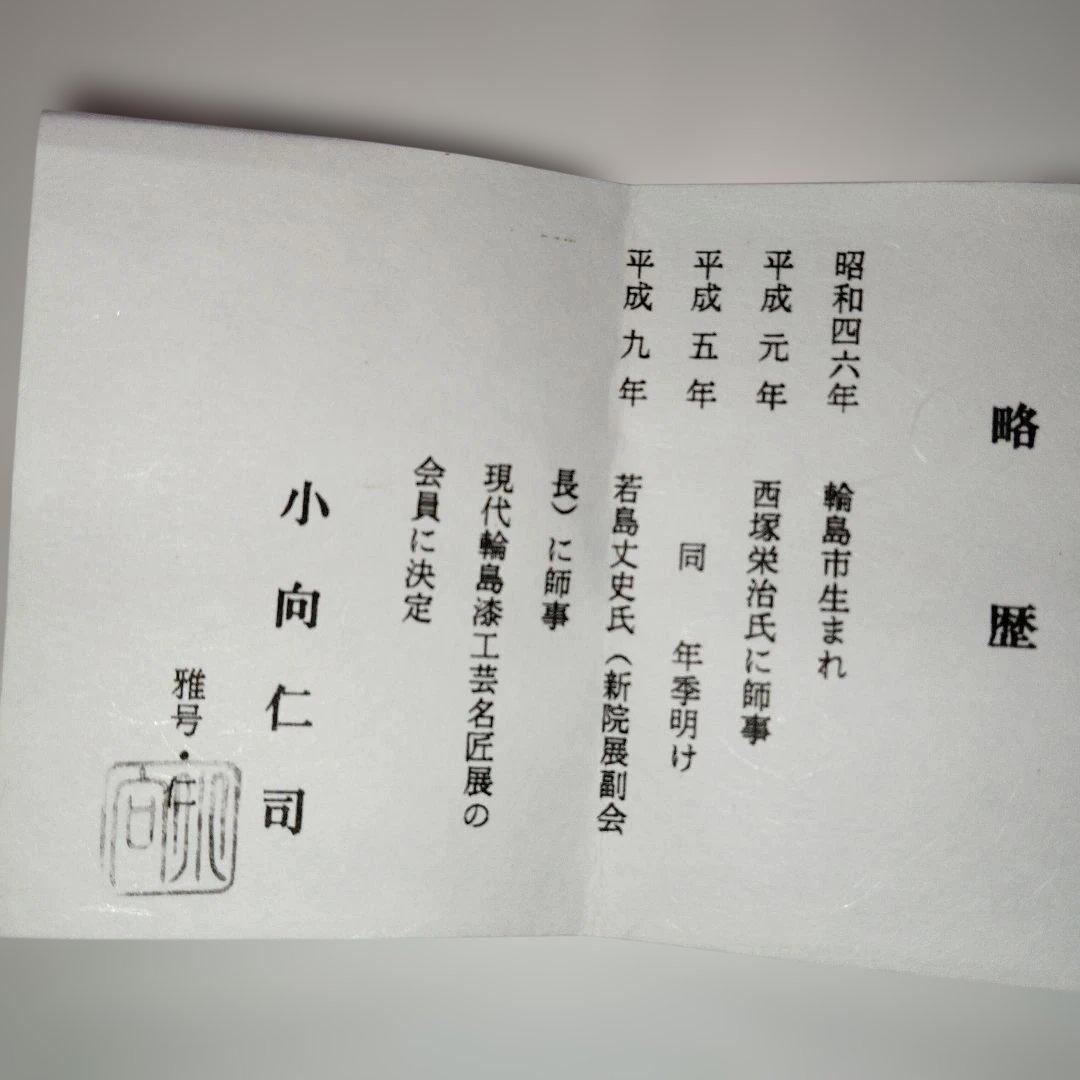 略歴
昭和四六年 輪島市生まれ
平成元年 西塚栄治氏に師事
平成五年 同 年季明け
平成九年 若島丈史氏（新院展副会
長）に師事
現代輪島漆工芸名匠展の
会員に決定
小向仁司
雅号・仁
小向